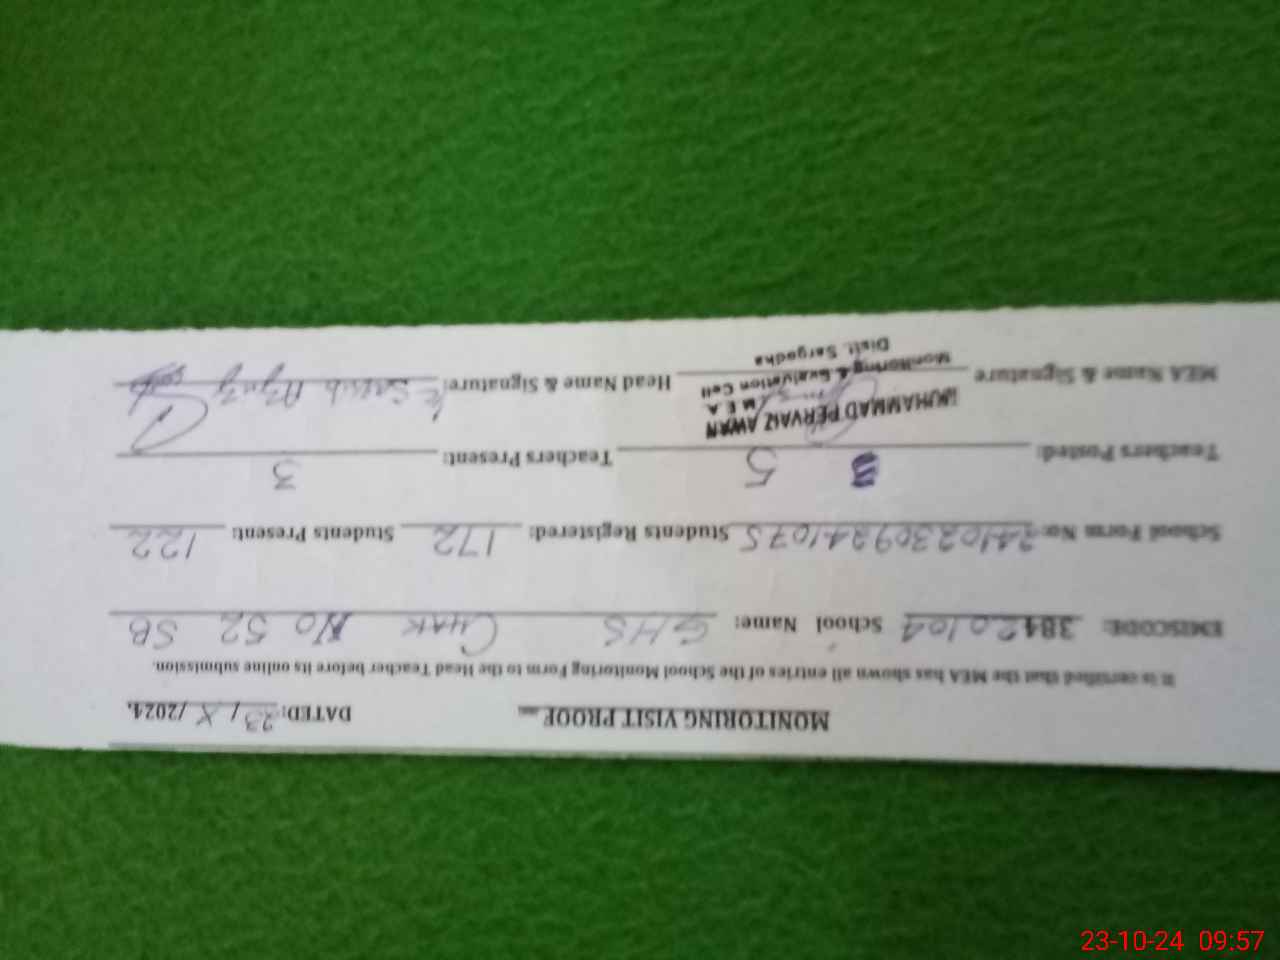 MONITORING VISIT PROOF DATED: 23/X/2024.
It is certified that the MEA has shown all entries of the School Monitoring Form to the Head Teacher before its online submission.
EMISCODE: School Name: GHS CHAK No 52 SB
School Form No: Students Registered: 172 Students Present: 122
Teachers Posted: 5 Teachers Present: 3
MEA Name & Signature Head Name & Signature:
MUHAMMAD PERVAIZ AWAN
M E A
Monitoring & Evaluation Cell
Distt. Sargodha
23-10-24 09:57